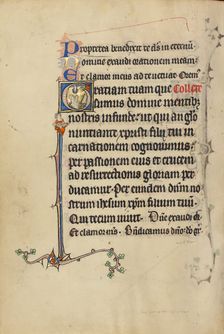 Propterea benedixit te deus in eternum
Domine exaudi orationem meam
Et clamor meus ad te veniat Oremus
Gratiam tuam que Collecte
sumus domine mentibus
nostris infunde ut qui an
nuntiante xpisti filii tui in
carnationem cognovimus
per passionem eius et crucem
ad resurrectionis gloriam per
ducamur Per eundem dnm no
strum ihesum xpm filium tuum
Qui tecum vivit Dne exaudi or
Et clamor ms Bndicamus dno